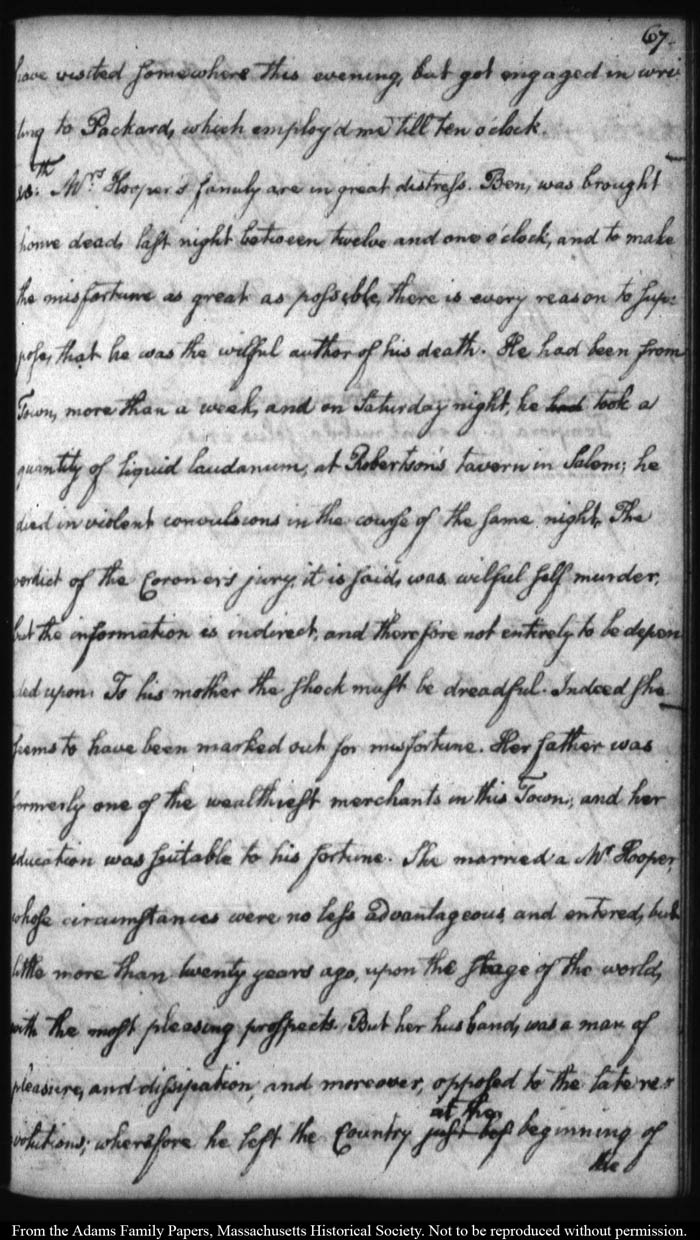 67.
have visited somewhere this evening, but got engaged in wri-
ting to Packard, which employ'd me till ten o'clock.
18.th Mrs. Hooper's family are in great distress. Ben, was brought
home dead, last night between twelve and one o'clock, and to make
the misfortune as great as possible, there is every reason to sup-
pose, that he was the wilful author of his death. He had been from
Town, more than a week, and on Saturday night, he had took a
quantity of liquid laudanum, at Robertson's tavern in Salem; he
died in violent convulsions in the course of the same night. The
verdict of the Coroner's jury, it is said, was wilful self murder,
but the information is indirect, and therefore not entirely to be depen-
ded upon. To his mother the shock must be dreadful. Indeed she
seems to have been marked out for misfortune. Her father was
formerly one of the wealthiest merchants in this Town; and her
education was suitable to his fortune. She married a Mr. Hooper,
whose circumstances were no less advantageous, and entered, but
little more than twenty years ago, upon the stage of the world,
with the most pleasing prospects. But her husband, was a man of
pleasure, and dissipation, and moreover, opposed to the late re-
volutions; wherefore he left the Country just bef at the beginning of
the
From the Adams Family Papers, Massachusetts Historical Society. Not to be reproduced without permission.